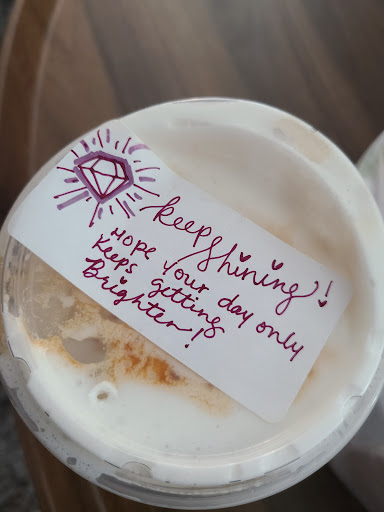 keep shining!
Hope your day only
keeps getting
Brighter!